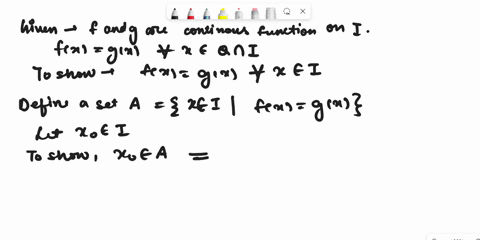 Given → f and g are continous function on I.
f(x) = g(x) ∀ x ∈ Q∩I
To show → f(x) = g(x) ∀ x ∈ I
Define a set A = { x∈I | f(x) = g(x) }
Let x₀ ∈ I
To show, x₀ ∈ A =